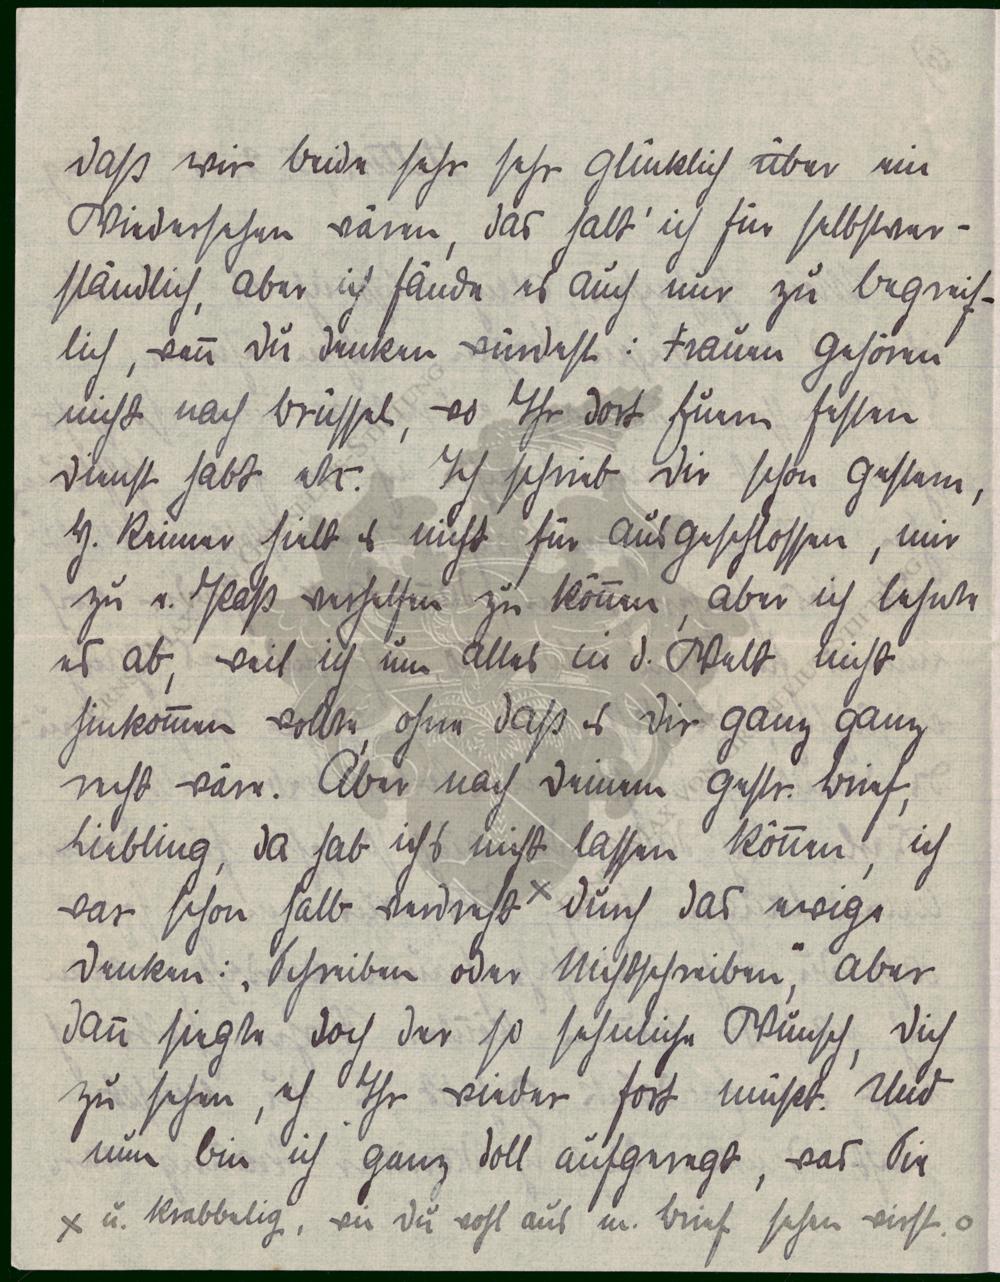 daß wir beide sehr sehr glücklich über ein
Wiedersehen wären, das halt' ich für selbstver-
ständlich, aber ich fände es auch nur zu begreif-
lich, wenn Du denken würdest: Frauen gehören
nicht nach Brüssel, wo Ihr dort Euern festen
Dienst habt etc. Ich schrieb Dir schon gestern,
H. Reimer hielt es nicht für ausgeschlossen, mir
zu e. Paß verhelfen zu können, aber ich lehnte
es ab, weil ich um alles in d. Welt nicht
hinkommen wollte, ohne daß es Dir ganz ganz
recht wäre. Aber nach Deinem gestr. Brief,
Liebling, da hab ich's nicht lassen können, ich
war schon halb verdreht x durch das ewige
Denken: „Schreiben oder Nichtschreiben", aber
dann siegte doch der so sehnliche Wunsch, Dich
zu sehen, eh Ihr wieder fort müßt. Und
nun bin ich ganz doll aufgeregt, was Sie
x u. krabbelig, wie Du wohl aus m. Brief sehen wirst. o